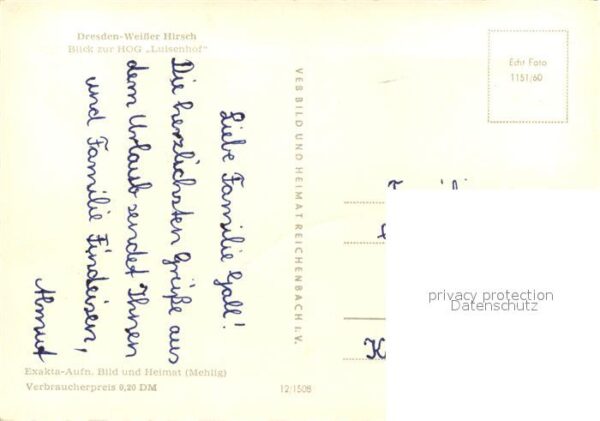 Dresden-Weißer Hirsch
Blick zur HOG „Luisenhof"
Liebe Familie Gall!
Die herzlichsten Grüße aus
dem Urlaub sendet Ihnen
und Familie Findeisen,
Almut
Exakta-Aufn. Bild und Heimat (Mehlig)
Verbraucherpreis 0,20 DM
VEB BILD UND HEIMAT REICHENBACH I. V.
12/1508
Echt Foto
1151/60
privacy protection
Datenschutz